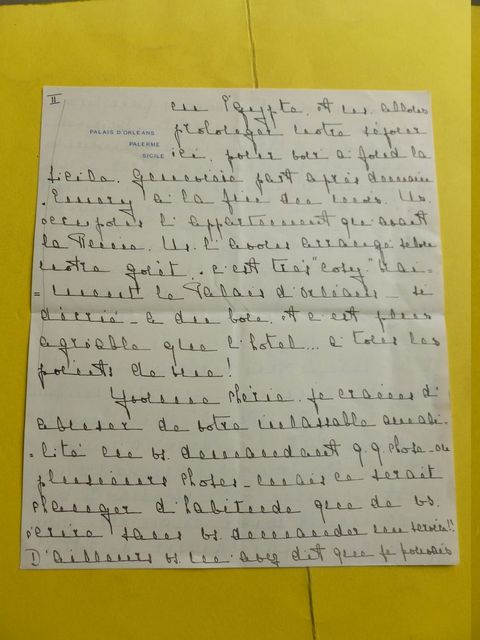 II
PALAIS D'ORLÉANS
PALERME
SICILE
en Egypte, et ns. allons
prolonger notre séjour
ici, pour voir à fond la
Sicile. Geneviève part après demain
à la fin du mois. Ns.
occupons l'appartement qu'avait
la Reine. Ns. l'avons arrangé selon
notre goût. c'est très "cosy." Vrai-
-ment le Palais d'Orléans - si
décrié - a du bon, et c'est plus
agréable que l'hôtel... à tous les
points de vue!
chérie, je crains d'
abuser de votre inlassable amabi-
-lité en vs. demandant q.q. chose - ou
plusieurs choses - mais ce serait
changer d'habitude que de vs.
écrire sans vs. demander un service!!
D'ailleurs vs. m'avez dit que je pouvais